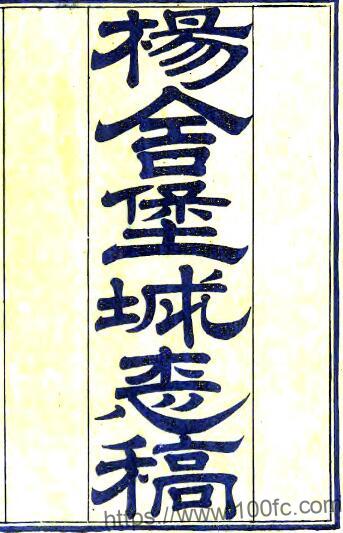 楊舍堡城志稿
https://www.100fc.com